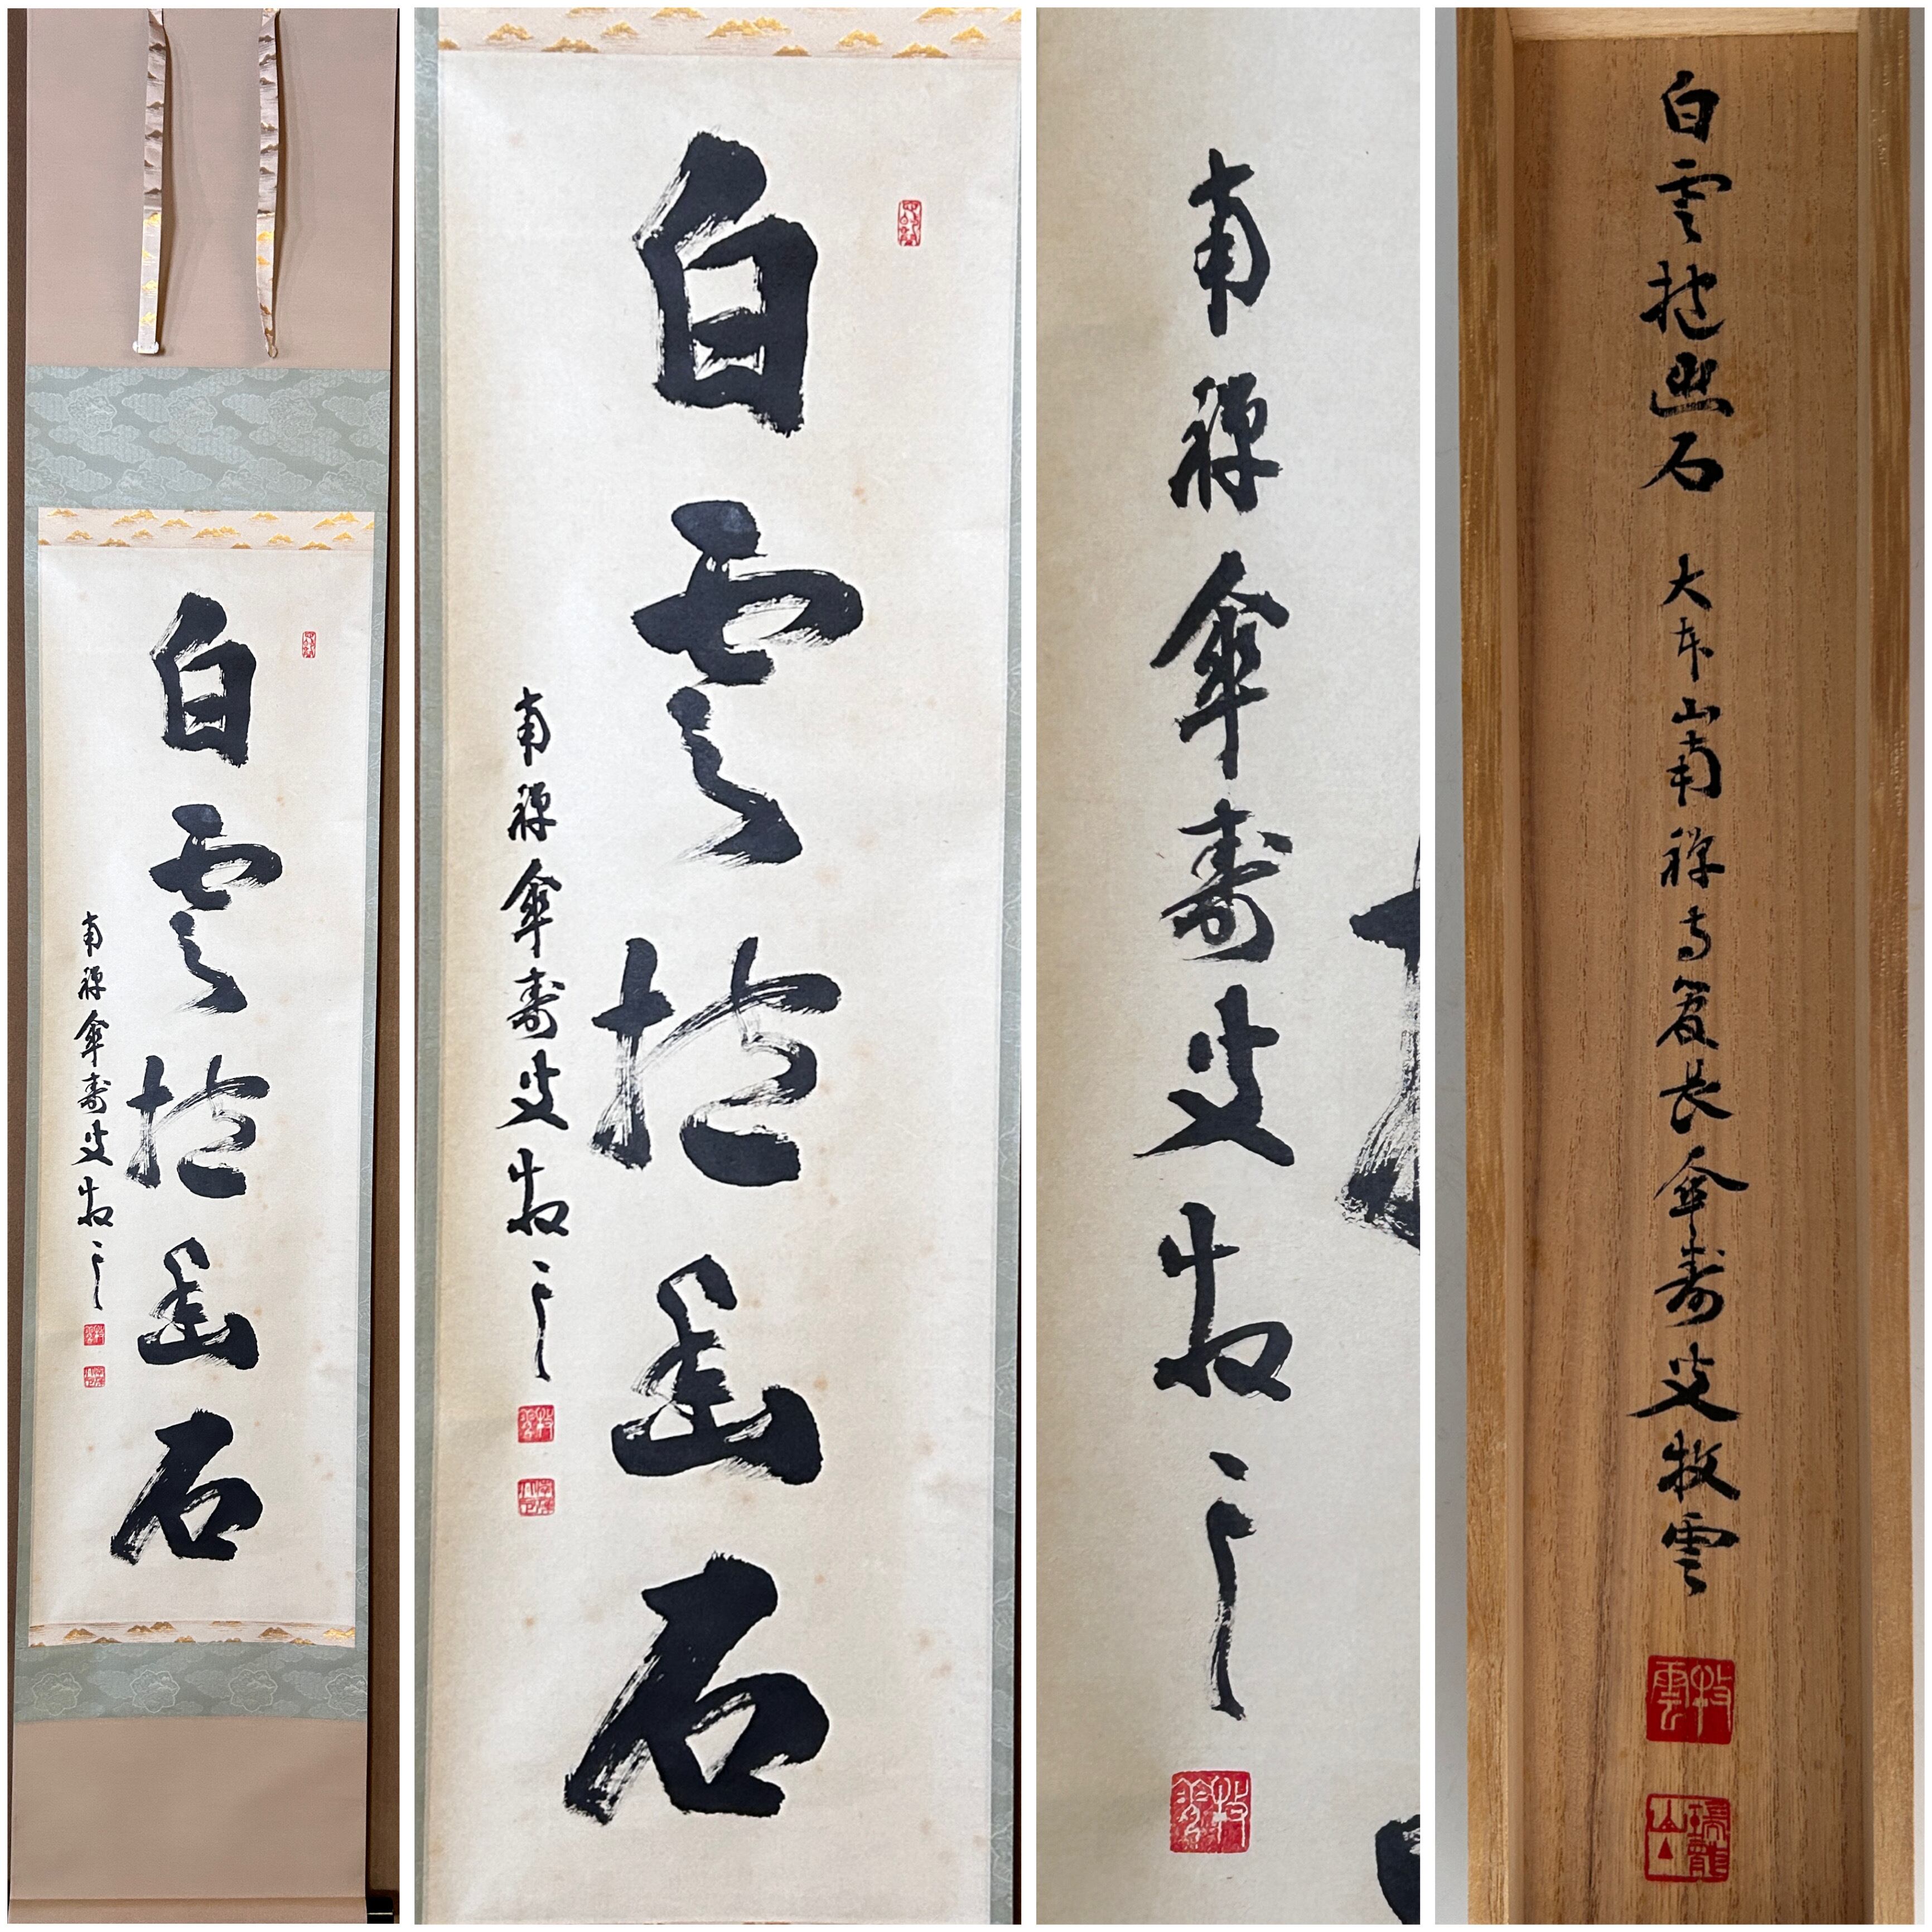 白雲抱幽石
南禅傘寿叟牧雲
白雲抱幽石
南禅傘寿叟牧雲
南禅傘寿叟牧雲
白雲抱幽石 大本山南禅寺管長傘寿叟牧雲
牧雲
瑞龍山